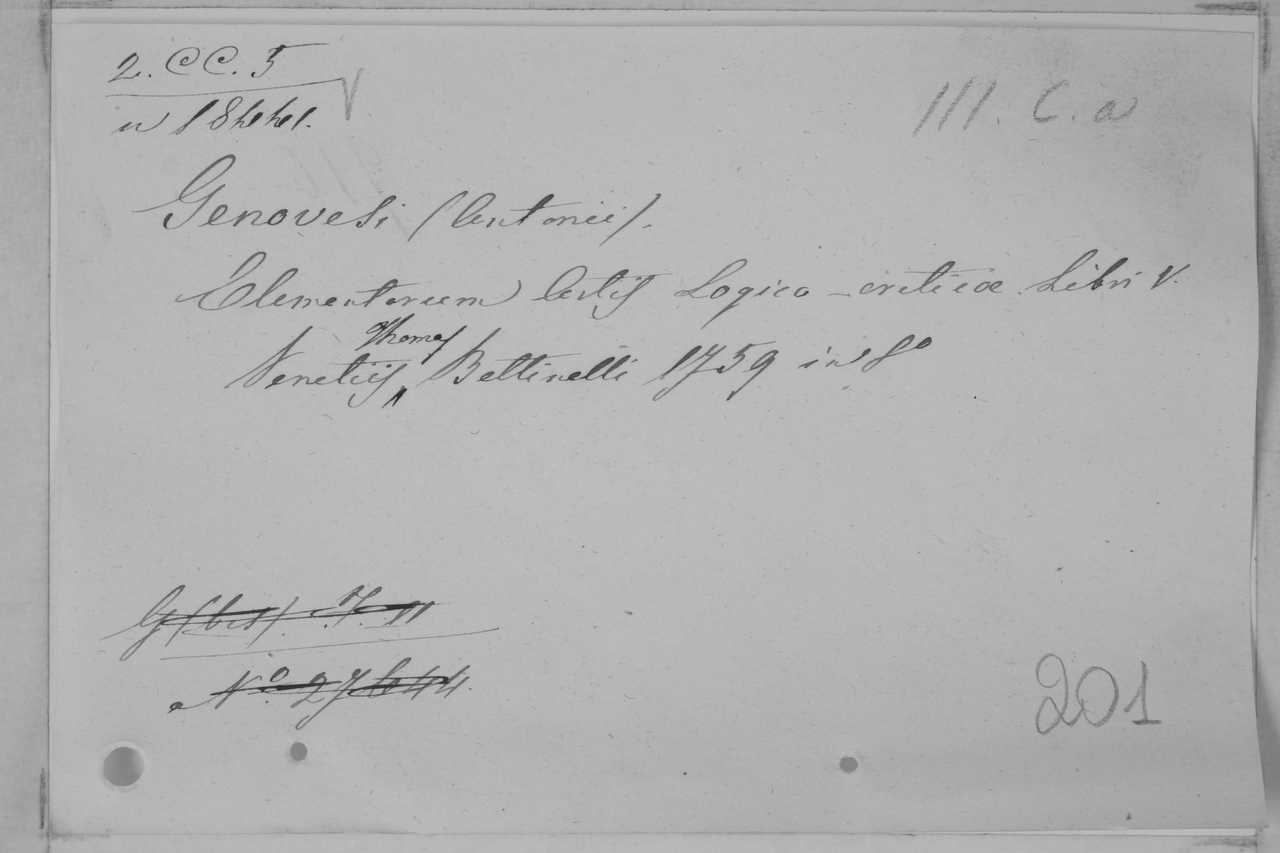 2. CC. 5
III. C. a
Genovesi (Antonii).
Elementorum Artis Logico-criticæ. Libri V.
Venetiis Thomas Bettinelli 1759 in 8º
G (bis). 7. 11
Nº 27644.
201